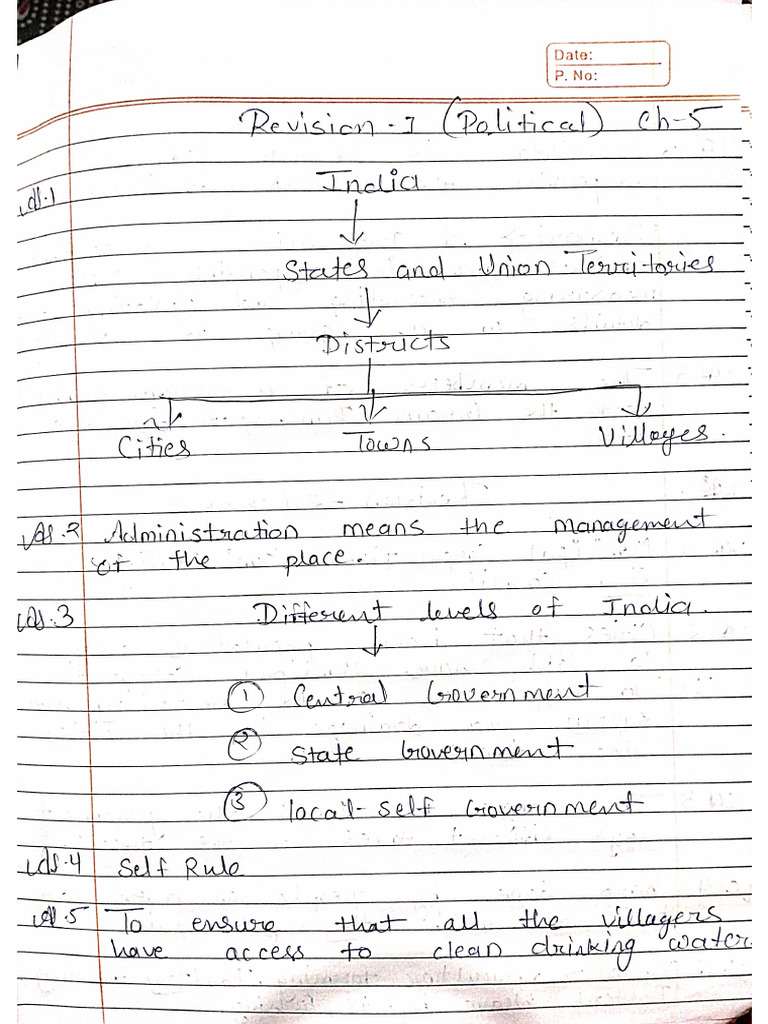 Date:
P. No:
Revision - I (Political) Ch-5
India
States and Union Territories
Districts
Cities Towns Villages.
Administration means the management
of the place.
Different levels of India.
① Central Government
② State Government
③ local-self Government
Self Rule
To ensure that all the villagers
have access to clean drinking water